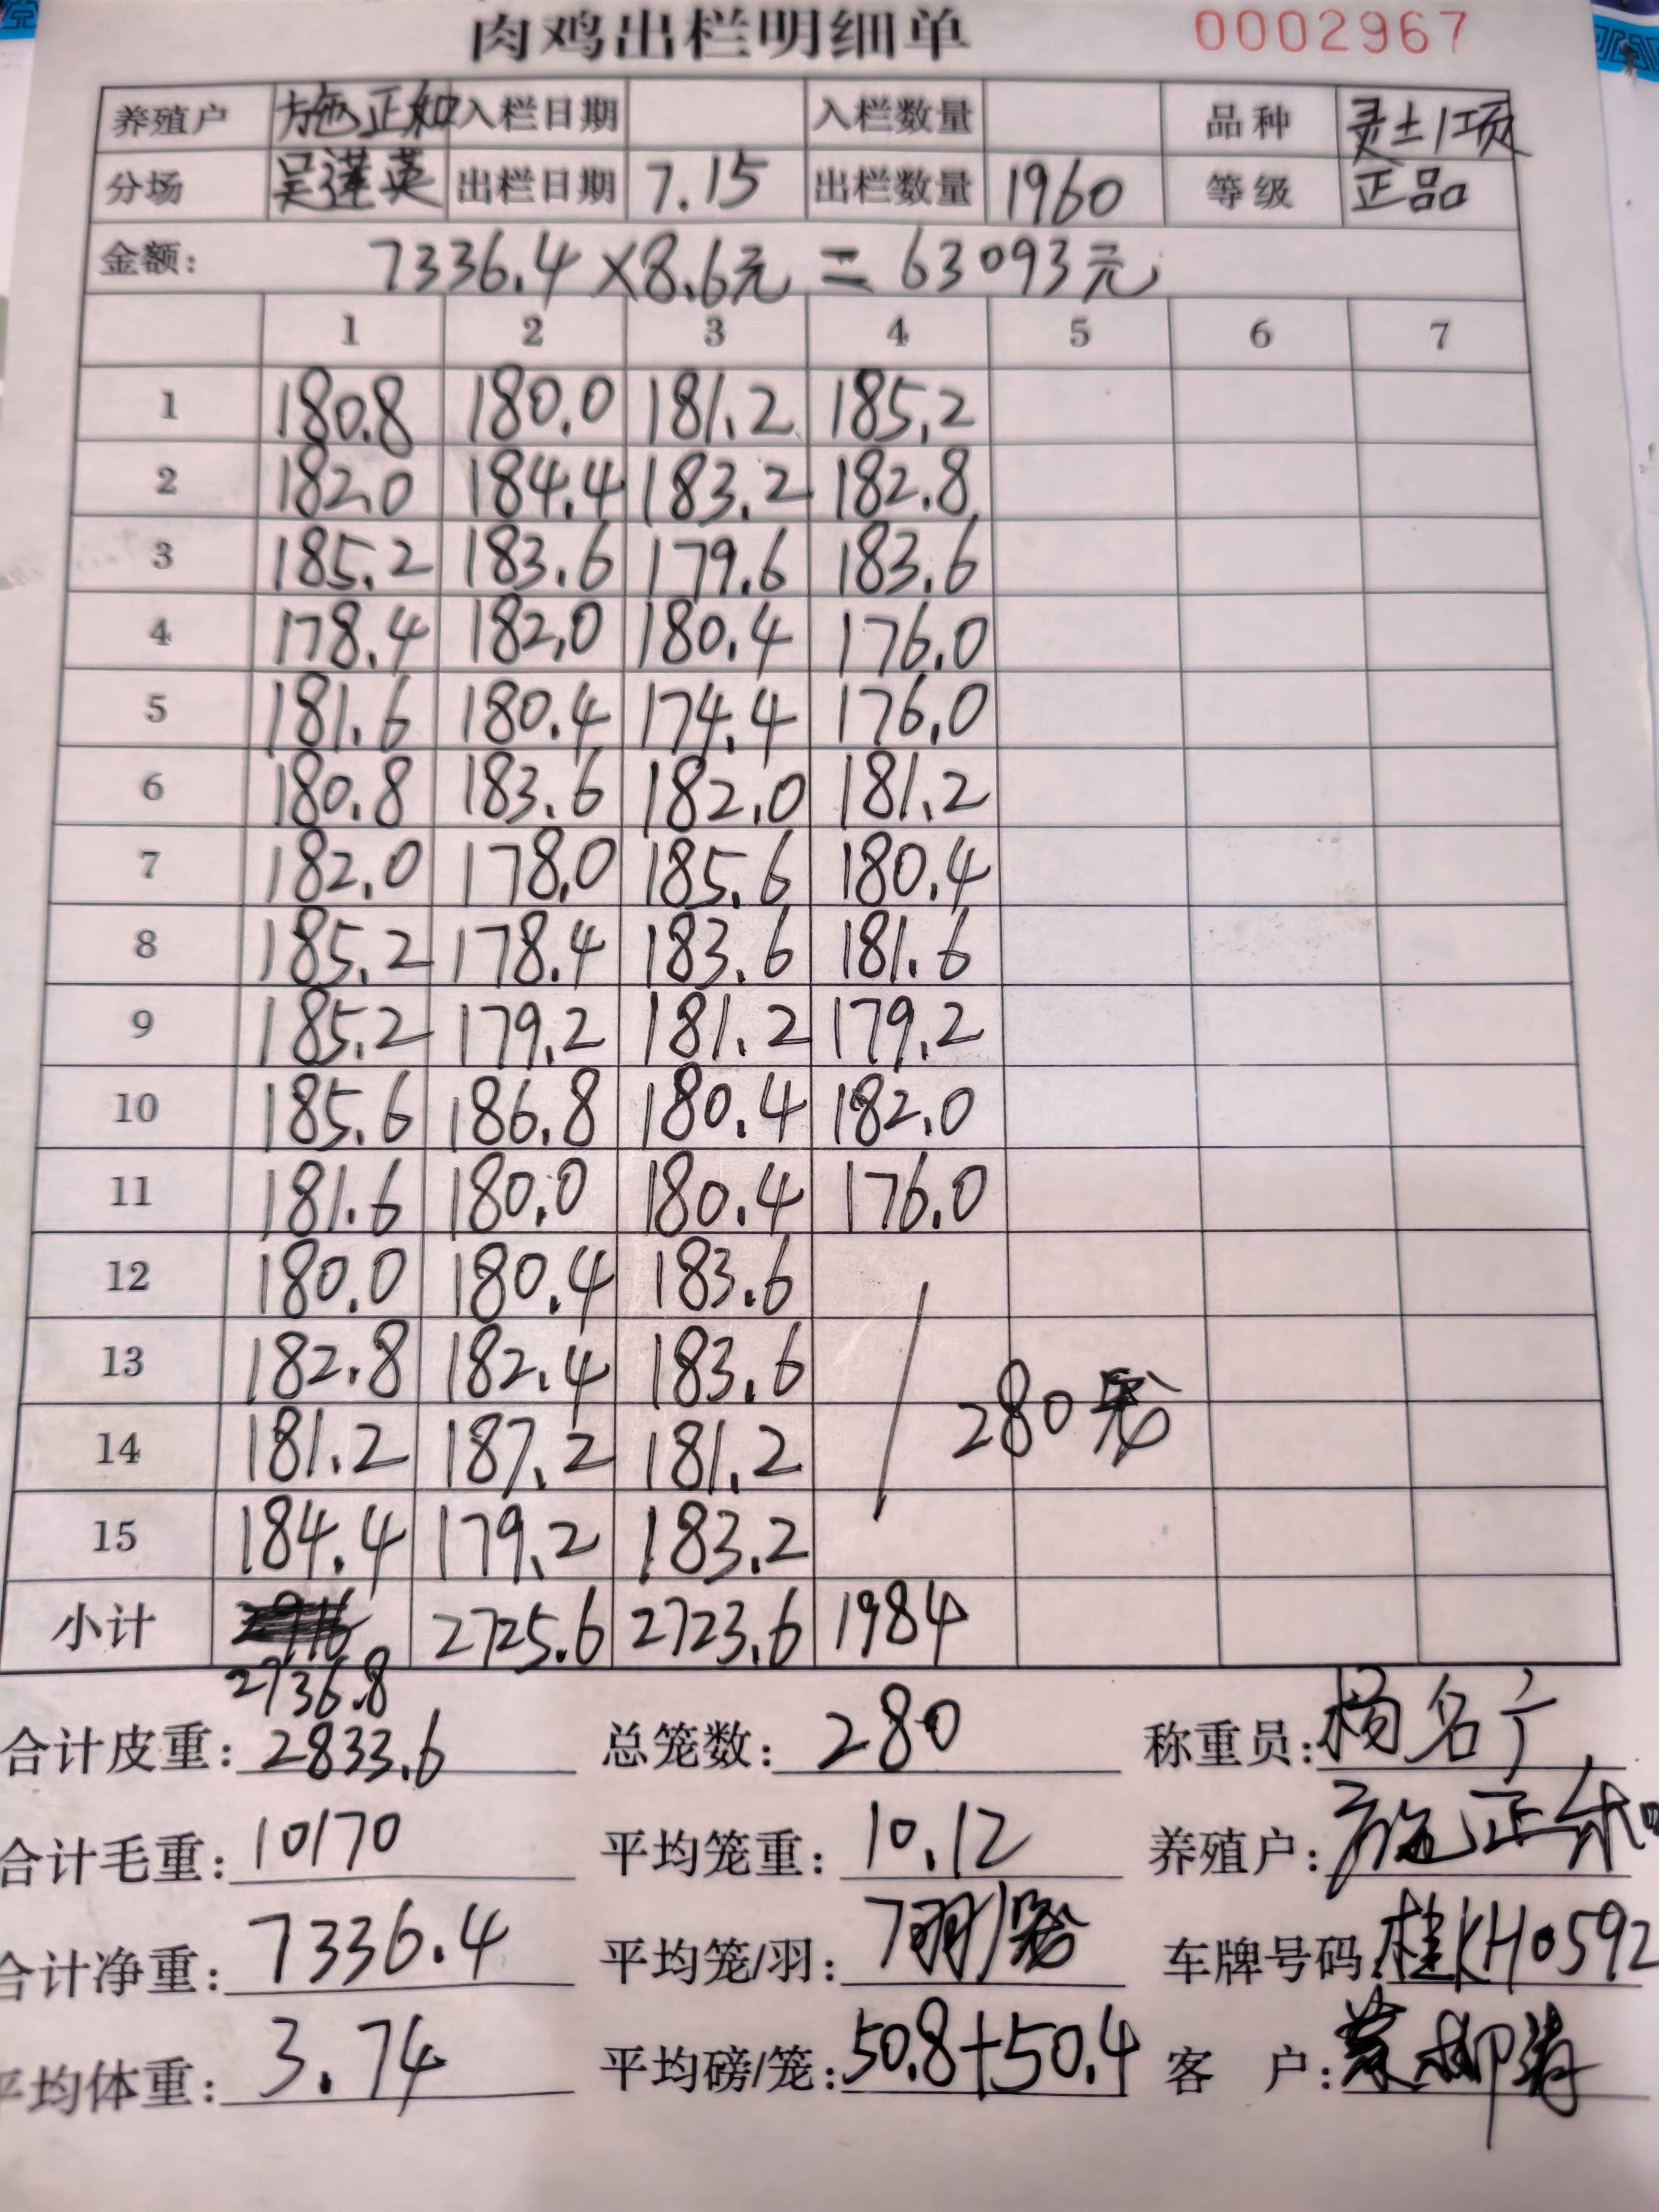 肉鸡出栏明细单 0002967
养殖户 施正和 入栏日期 入栏数量 品种 灵土1项
分场 吴莲英 出栏日期 7.15 出栏数量 1960 等级 正品
金额: 7336.4×8.6元=63093元
1 2 3 4 5 6 7
1 180.8 180.0 181.2 185.2
2 182.0 184.4 183.2 182.8
3 185.2 183.6 179.6 183.6
4 178.4 182.0 180.4 176.0
5 181.6 180.4 174.4 176.0
6 180.8 183.6 182.0 181.2
7 182.0 178.0 185.6 180.4
8 185.2 178.4 183.6 181.6
9 185.2 179.2 181.2 179.2
10 185.6 186.8 180.4 182.0
11 181.6 180.0 180.4 176.0
12 180.0 180.4 183.6
13 182.8 182.4 183.6
280
14 181.2 187.2 181.2
15 184.4 179.2 183.2
小计 2725.6 2723.6 1984
2736.8
合计皮重: 2833.6 总笼数: 280 称重员: 杨名广
合计毛重: 10170 平均笼重: 10.12 养殖户: 施正和
合计净重: 7336.4 平均笼/羽: 7羽/ 车牌号码: 桂KH0592
平均体重: 3.74 平均磅/笼: 50.8+50.4 客户: